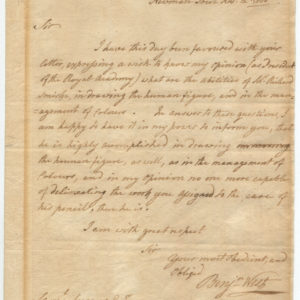 Newman Street
Sir
I have this day been favoured with your
letter, expressing a wish to have my opinion (as President
of the Royal Academy) what are the abilities of Mr. Richard
Smirke, in drawing the human figure, and in the man-
agement of Colours. In answer to those questions, I
am happy to have it in my power to inform you, that
he is highly accomplished in drawing
the human figure, as well, as in the management of
Colours, and in my opinion no one more capable
of delineating the work you assigned to the care of
his pencil, than he is.
I am with great respect
Sir
Your most obedient, and
Obliged
Benjn. West